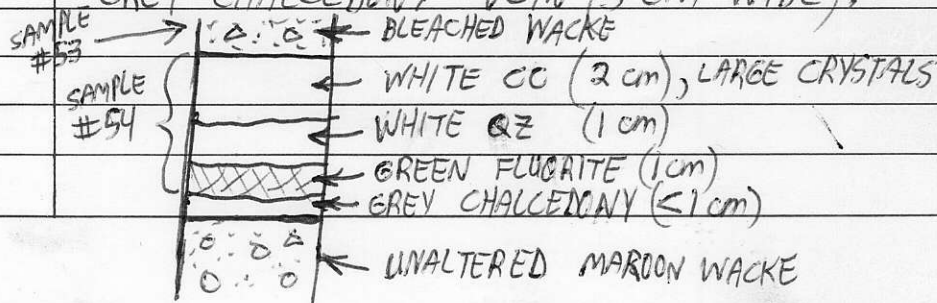 GREY CHALCEDONY VEIN (5 cm WIDE).
SAMPLE #53
BLEACHED WACKE
SAMPLE #54
WHITE CC (2 cm), LARGE CRYSTALS
WHITE QZ (1 cm)
GREEN FLUORITE (1cm)
GREY CHALCEDONY (<1 cm)
UNALTERED MAROON WACKE